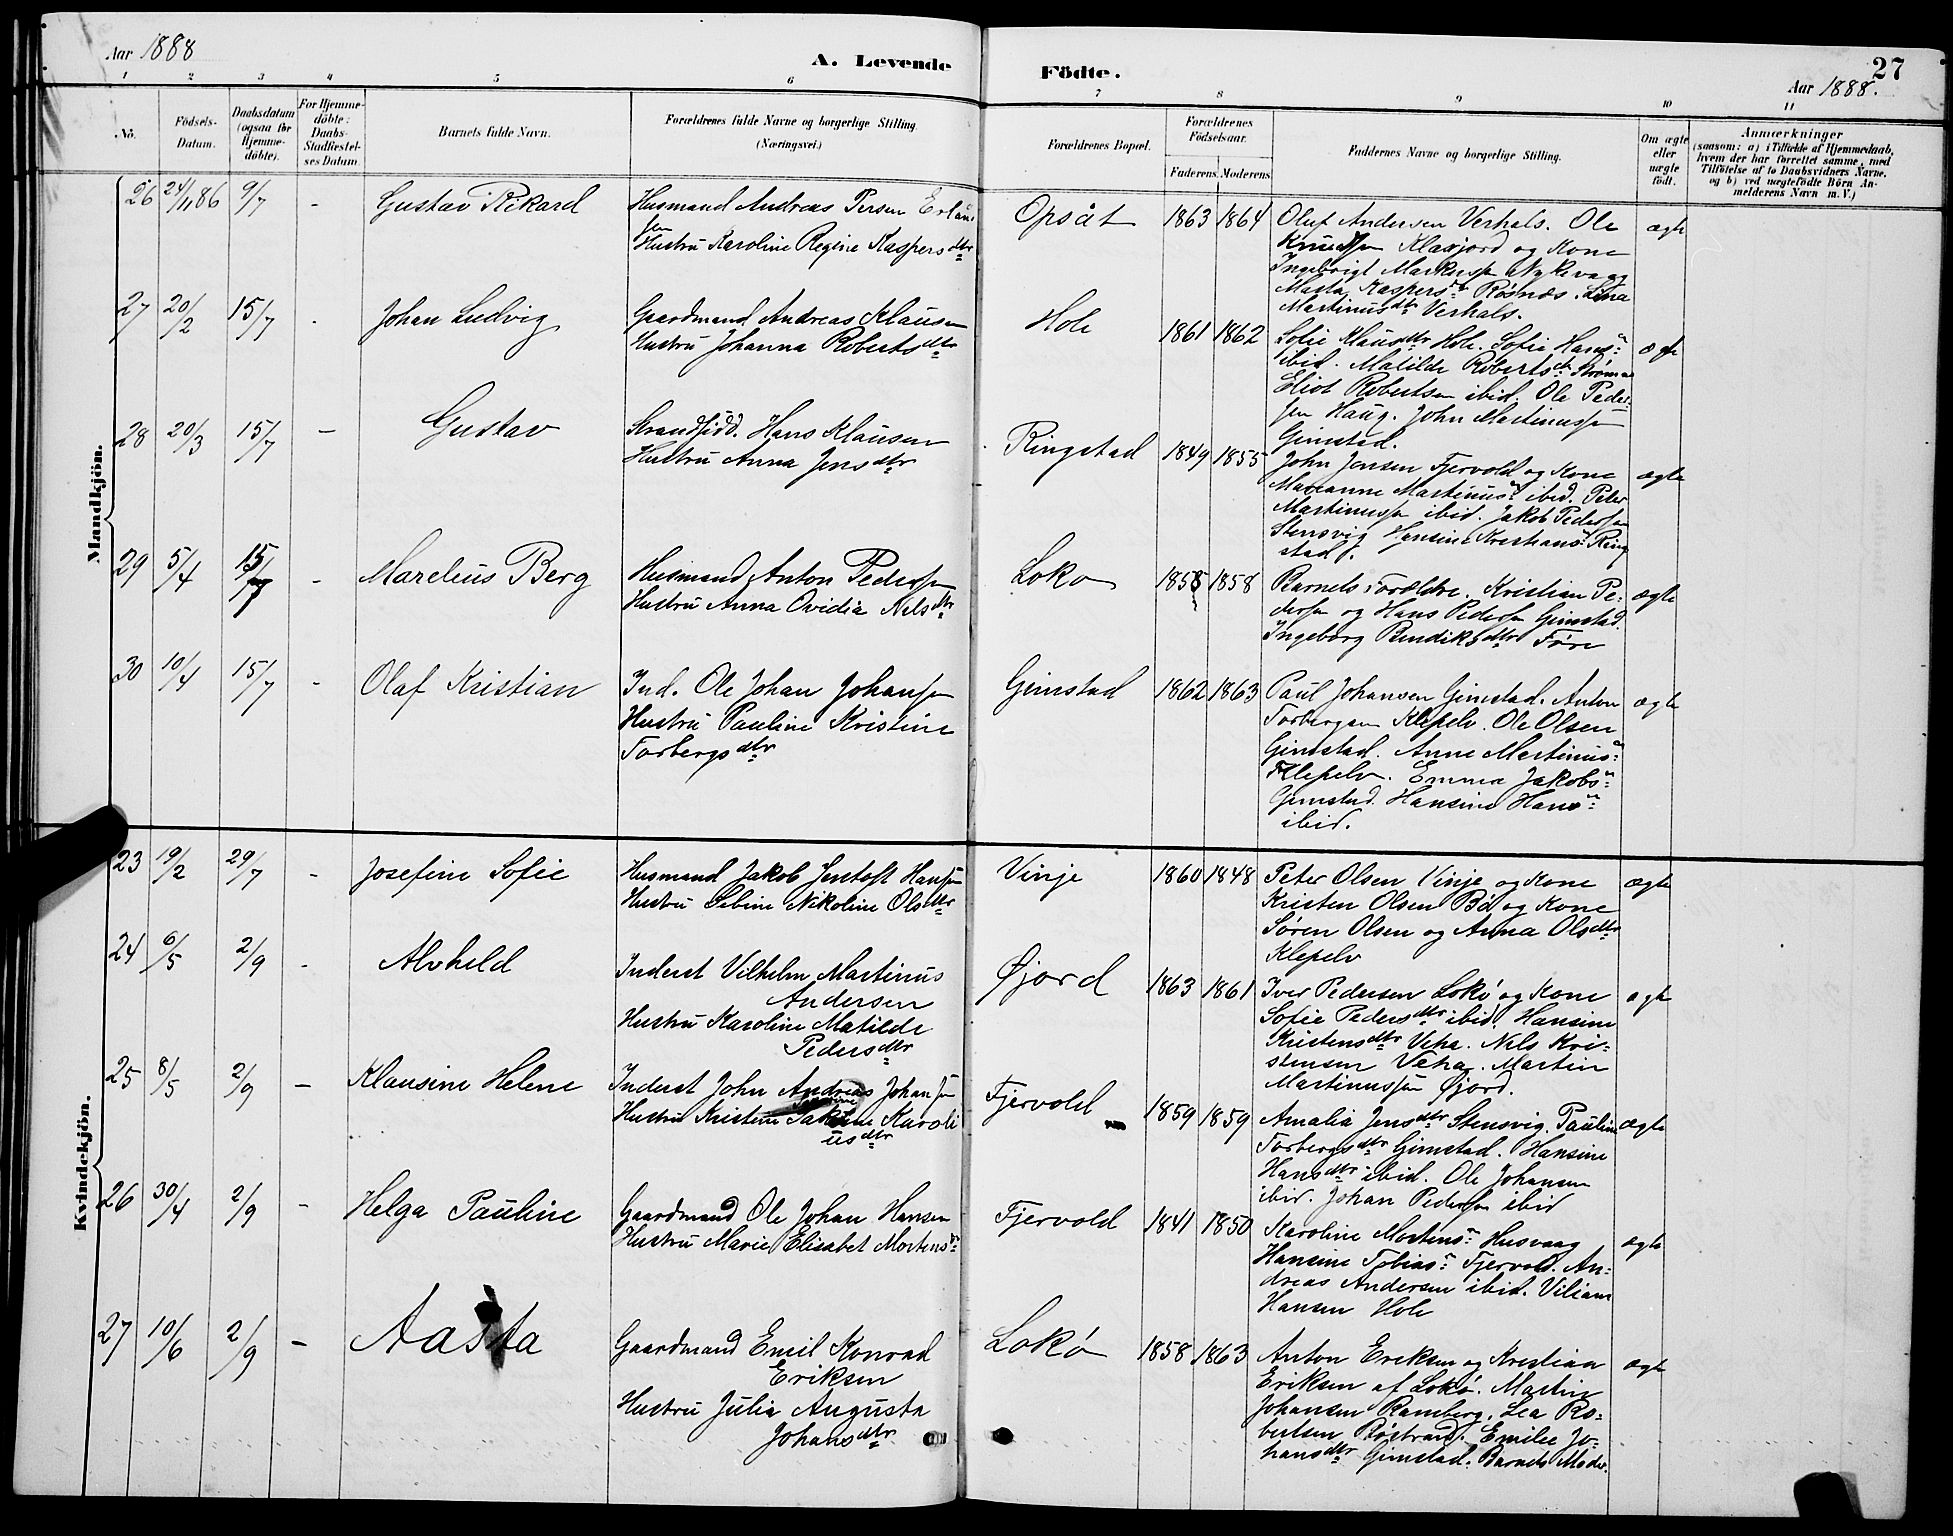 Aar 1888
A. Levende
Födte.
27
Aar 1888.
1 2 3 4 5 6 7 8 9 10 11
No.
Födsels-
Datum.
Daabsdatum
(ogsaa for
Hjemme-
döbte).
For Hjemme-
döbte:
Daabs-
Stadfæstel-
ses Datum.
Barnets fulde Navn.
Forældrenes fulde Navne og borgerlige Stilling.
(Næringsvei.)
Forældrenes Bopæl.
Forældrenes
Födselsaar.
Faderens. Moderens.
Faddernes Navne og borgerlige Stilling.
Om ægte
eller
uægte
födt.
Anmærkninger
(saasom: a) i Tilfælde af Hjemmedaab,
hvem der har forrettet samme, med
Tilföielse af to Daabsvidners Navne,
og b) ved uægtefödte Börn An-
melderens Navn m. V.)
Mandkjön.
26 24/11 86 9/7 -
Gustav Rikard
Husmand Andreas Persen Erlan-
sen
Hustru Karoline Regine Kaspersdtr
Opsåt
1863 1864
Oluf Andersen Verhals. Ole
Knudsen Klaxjord og Kone
Ingebrigt Markussen Nykvaag
Marta Kaspersdtr Røsnæs. Lina
Martinusdtr Verhals.
ægte
27 20/2 15/7 -
Johan Ludvig
Gaardmand Andreas Klausen
Hustru Johanna Robertsdtr
Hole
1861 1862
Sofie Klausdtr Hole. Sofie Hans"
ibid. Matilde Robertsdtr Strømme
Eliot Robertsen ibid. Ole Peder-
sen Haug. John Martinussen
Gimstad.
ægte
28 20/3 15/7 -
Gustav
Strandsidd. Hans Klausen
Hustru Anna Jensdtr
Ringstad
1849 1855
John Jensen Fjervold og Kone
Marianne Martinus" ibid. Peter
Martinussen ibid. Jakob Pedersen
Stensvig Hansine Kristians" Ring
stad.
ægte
29 5/4 15/7 -
Marelius Berg
Husmand Anton Pedersen
Hustru Anna Ovidia Nilsdtr
Lokø
1858 1858
Barnets Forældre. Kristian Pe-
dersen og Hans Pedersen Gimstad.
Ingeborg Bendiksdtr Føre
ægte
30 10/4 15/7 -
Olaf Kristian
Ind. Ole Johan Johansen
Hustru Pauline Kristine
Torbergsdtr
Gimstad
1862 1863
Paul Johansen Gimstad. Anton
Torbergsen Klepelv. Ole Olsen
Gimstad. Anne Martinus"
Klepelv. Emma Jakobs"
Gimstad. Hansine Hans"
ibid.
ægte
Kvindekjön.
23 19/2 29/7 -
Josefine Sofie
Husmand Jakob Jentoft Hansen
Hustru Sebine Nikoline Olsdtr
Vinje
1860 1848
Peter Olsen Vinje og Kone
Kristen Olsen Bø og Kone
Søren Olsen og Anna Olsdtr
Klepelv
ægte
24 6/5 2/9 -
Alvheld
Inderst Vilhelm Martinus
Andersen
Hustru Karoline Matilde
Pedersdtr
Øjord
1863 1861
Iver Pedersen Lokø og Kone
Sofie Pedersdtr ibid. Hansine
Kristensdtr Veha. Nils Kri-
stensen Veha. Martin
Martinussen Øjord.
ægte
25 8/5 2/9 -
Klausine Helene
Inderst John Andreas Johansen
Hustru Kristine Karoli
usdtr
Fjervold
1859 1859
Amalia Jensdtr Stensvig. Pauline
Torbergsdtr Gimstad. Hansine
Hansdtr ibid. Ole Johansen
ibid. Johan Pedersen ibid
ægte
26 30/4 2/9 -
Helga Pauline
Gaardmand Ole Johan Hansen
Hustru Marie Elisabet Mortens"
Fjervold
1841 1850
Karoline Mortens" Husvaag
Hansine Tobias" Fjervold. An-
dreas Andersen ibid. Viliam
Hansen Hole
ægte
27 10/6 2/9 -
Aasta
Gaardmand Emil Konrad
Eriksen
Hustru Julia Augusta
Johansdtr
Lokø
1858 1863
Anton Eriksen og Kristian
Eriksen af Lokø. Martin
Johansen Ramberg. Lea Ro-
bertsen Røstrand. Emilie Jo-
hansdtr Gimstad. Barnets Moder.
ægte